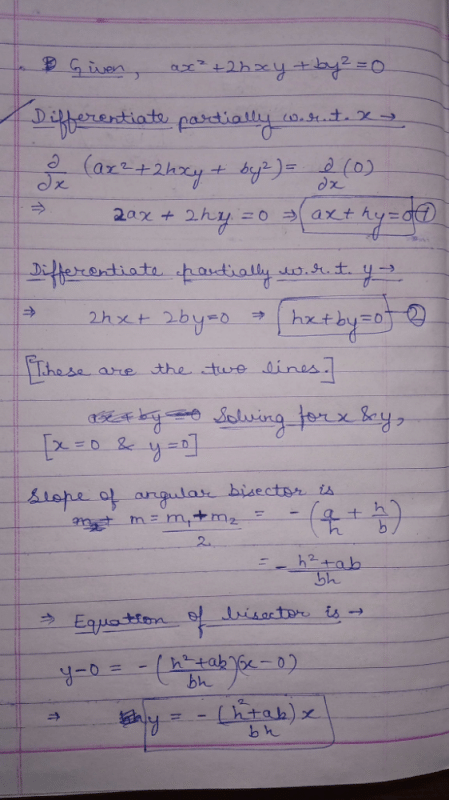 Given, ax² + 2hxy + by² = 0
Differentiate partially w.r.t. x →
∂/∂x (ax² + 2hxy + by²) = ∂/∂x (0)
⇒ 2ax + 2hy = 0 ⇒ ax + hy = 0 ①
Differentiate partially w.r.t. y →
⇒ 2hx + 2by = 0 ⇒ hx + by = 0 ②
[These are the two lines.]
Solving for x & y,
[x = 0 & y = 0]
Slope of angular bisector is
m = (m₁ + m₂)/2 = - (a/h + h/b)
= - (h² + ab)/bh
⇒ Equation of bisector is →
y - 0 = - ((h² + ab)/bh) (x - 0)
⇒ y = - ((h² + ab)/bh) x